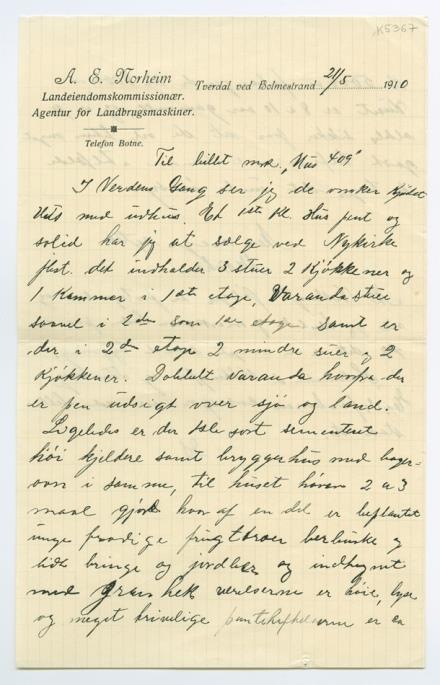 K5367
A. E. Norheim
Landeiendomskommissionær.
Agentur for Landbrugsmaskiner.
Telefon Botne.
Tverdal ved Holmestrand 21/5 1910
Til billet mrk „Hus 409"
I Verdens Gang ser jeg de ønsker Kjøbet
Hus med udhus. Et 1ste kl. Hus pent og
solid har jeg at sælge ved Nykirke
st. det indholder 3 stuer 2 Kjøkkener og
1 Kammer i 1ste etage, Varanda stue
saavel i 2den som 1ste etage samt er
der i 2den etage 2 mindre stuer og 2
Kjøkkener. Dobbelt varanda hvorfra der
er pen udsigt over sjø og land.
Ligeledes er der sementeret
høi kjeldere samt bryggerhus med bager=
ovn i samme, til huset hører 2 a 3
maal gjord hvor af en del er beplantet
unge frodige frugttrær berbuske og
lidt bringe og jordbær og indhegnet
med gran hek værelserne er høie, lyse
og meget trivelige er ca